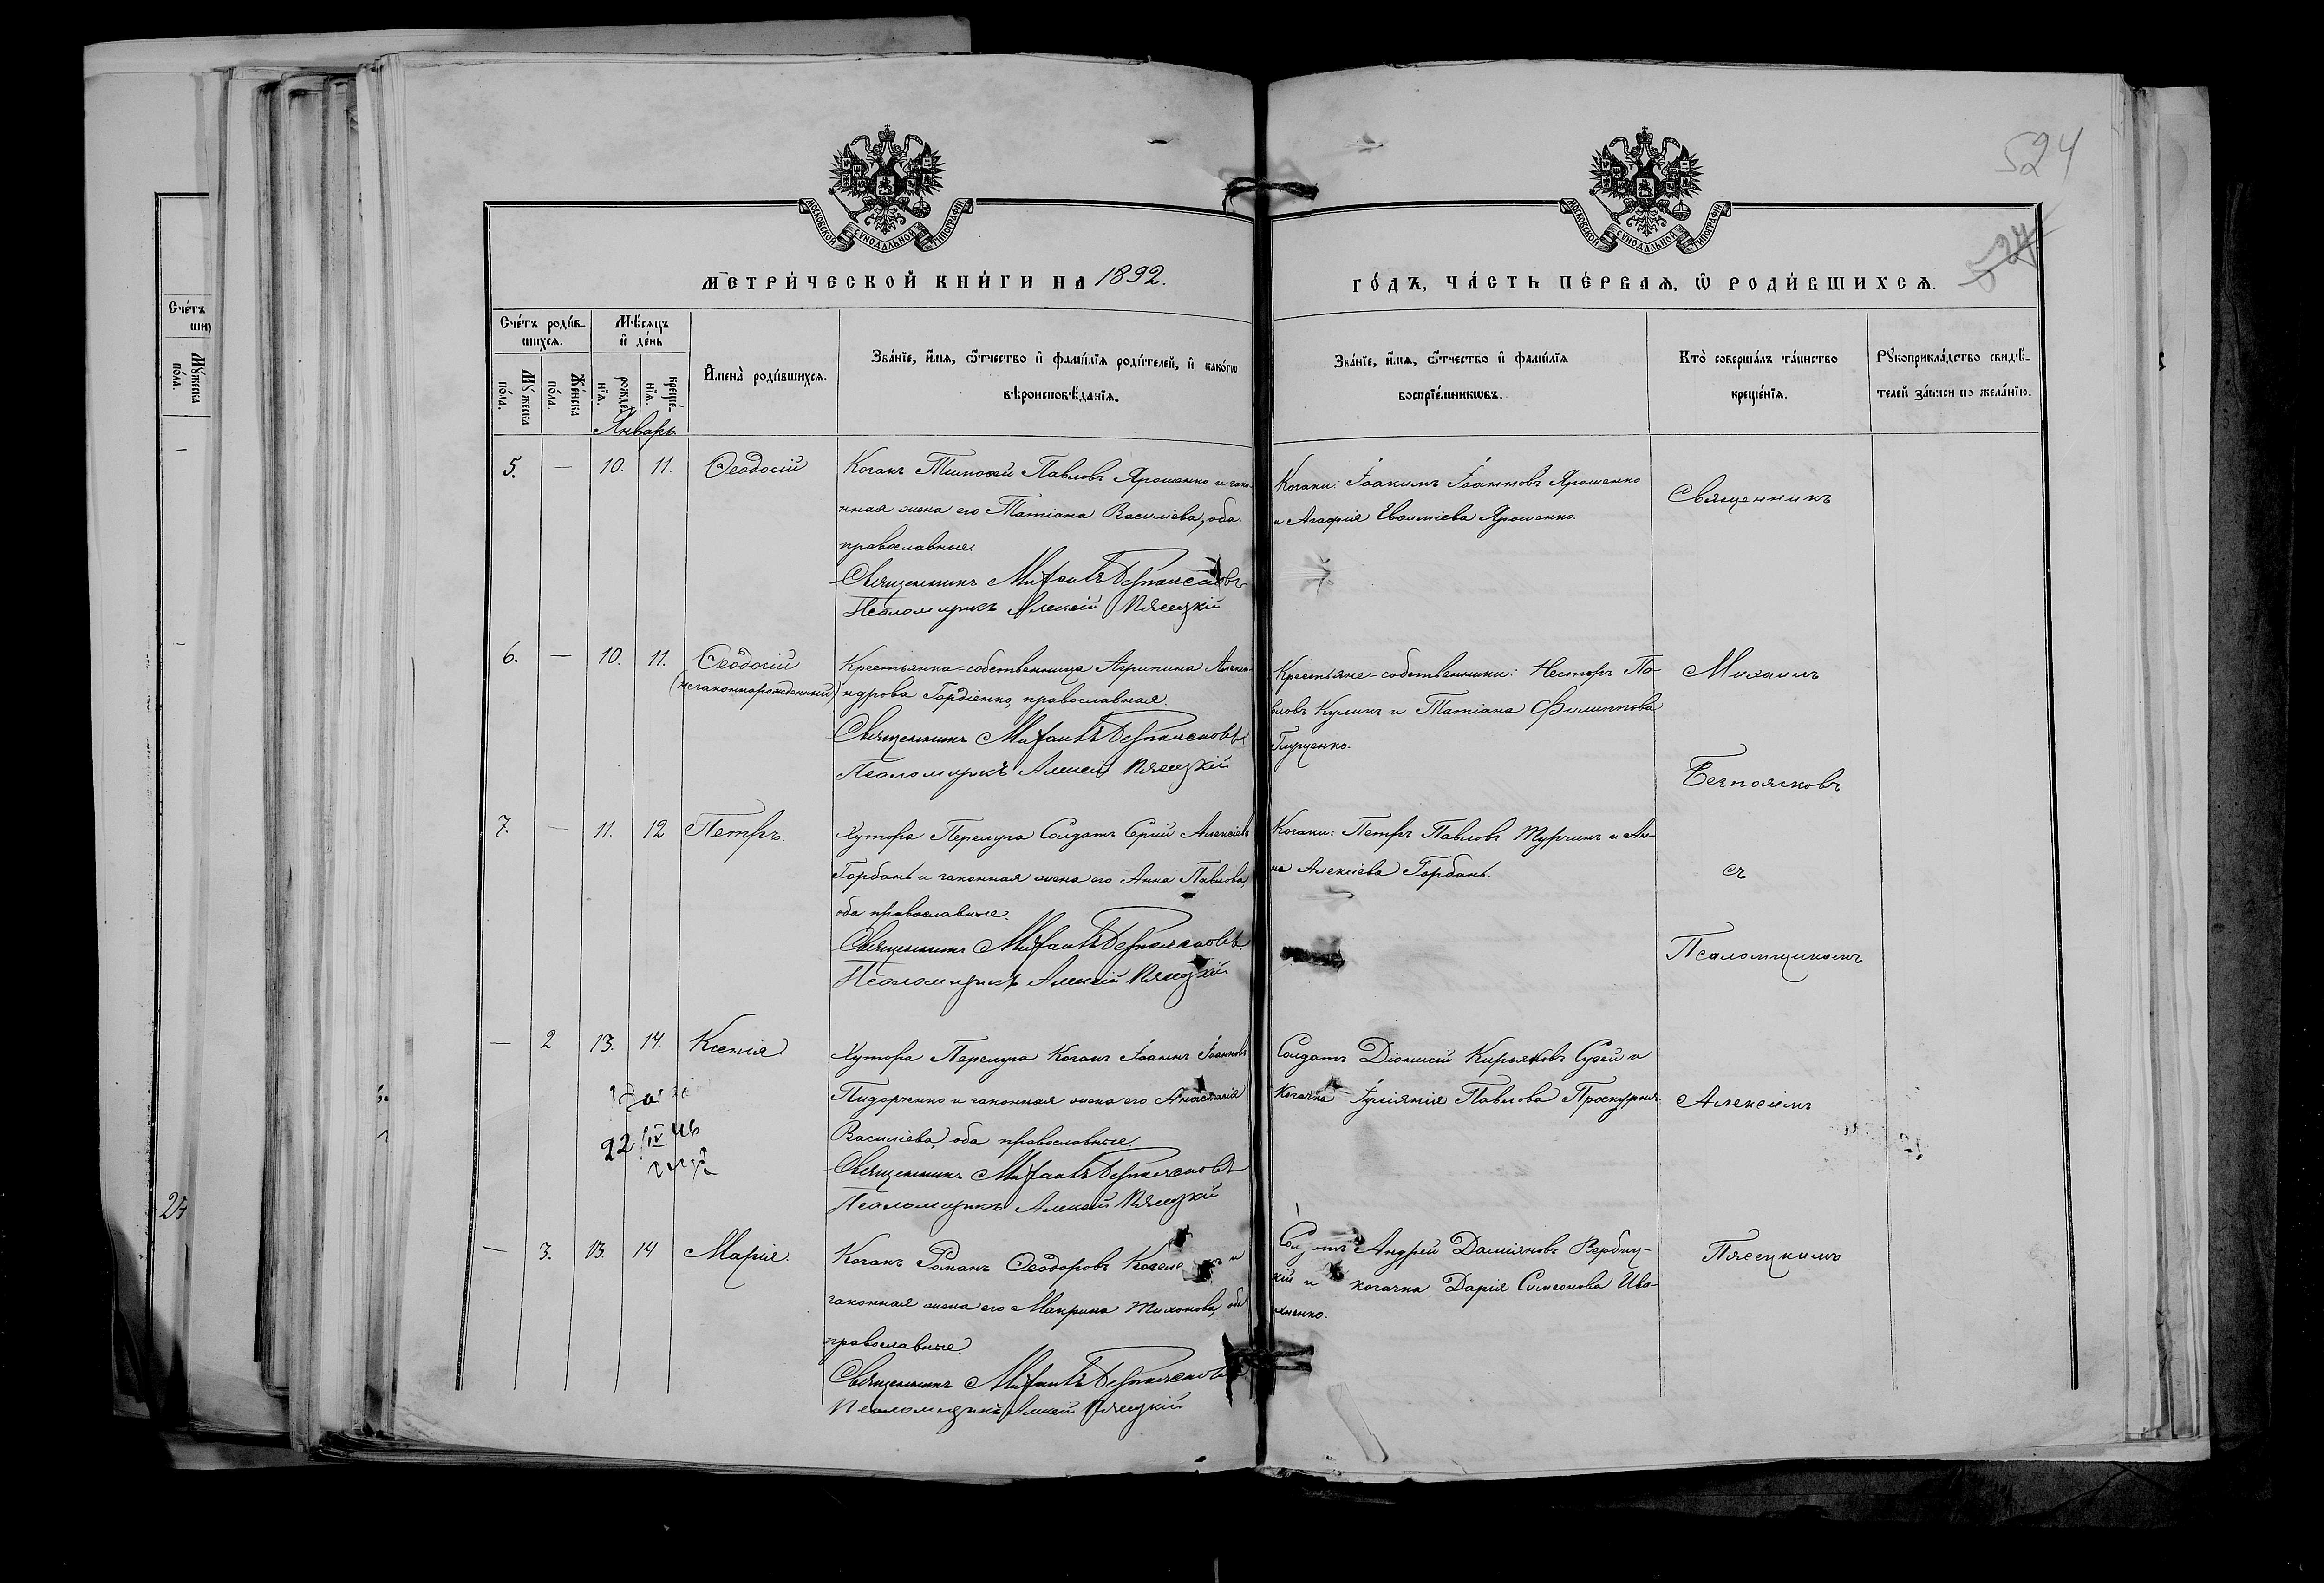 524
524
МОСКОВСКОЙ СѴНОДАЛЬНОЙ ТИПОГРАФІИ
МОСКОВСКОЙ СѴНОДАЛЬНОЙ ТИПОГРАФІИ
МЕТРИ́ЧЕСКОЙ КНИ́ГИ НА 1892.
ГО́ДЪ, ЧА́СТЬ ПЕ́РВАѦ, Ѡ҆ РОДИ́ВШИХСѦ.
Сче́тъ роди́в-
шихсѧ.
Мѣ́сѧцъ
и҆ де́нь
Мꙋ́жеска
по́ла.
Же́нска
по́ла.
рожде́-
нїѧ.
креще́-
нїѧ.
И҆мена̀ роди́вшихсѧ.
Зва́нїе, и҆́мѧ, ѻ҆́тчество и҆ фами́лїѧ роди́телей, и҆ како́гѡ
вѣроисповѣ́данїѧ.
Зва́нїе, и҆́мѧ, ѻ҆́тчество и҆ фами́лїѧ
воспрїе́мникѡвъ.
Кто̀ соверша́лъ та́инство
креще́нїѧ.
Рꙋкоприкла́дство свидѣ́-
телей за́писи по жела́нїю.
Январь
5. — 10. 11. Ѳеодосій
Козакъ Тимоѳей Павловъ Ярошенко и зако-
нная жена его Татіана Василіева, оба
православные.
Священникъ Михаилъ Безпоясковъ
Псаломщикъ Алексій Пясецкій
Козаки: Іоакимъ Іоанновъ Ярошенко
и Агафія Евѳиміева Ярошенко.
Священникъ
6. — 10. 11. Ѳеодосій
(незаконнорожденный)
Крестьянка-собственница Агрипина Алекса-
ндрова Гордіенко, православная.
Священникъ Михаилъ Безпоясковъ
Псаломщикъ Алексій Пясецкій
Крестьяне-собственники: Несторъ Па-
вловъ Куликъ и Татіана Филиппова
Михаилъ
Безпоясковъ
7. — 11. 12 Петръ.
Хутора Перелуга Солдатъ Сергій Алексіевъ
Горбань и законная жена его Анна Павлова,
оба православные.
Священникъ Михаилъ Безпоясковъ
Псаломщикъ Алексій Пясецкій
Козаки: Петръ Павловъ Турчинъ и Ан-
на Алексіева Горбань.
съ
Псаломщикомъ
— 2 13. 14. Ксенія.
22/IV 46
Хутора Перелуга Козакъ Іоаннъ Іоанновъ
Пидорченко и законная жена его Анастасія
Василіева, оба православные.
Священникъ Михаилъ Безпоясковъ
Псаломщикъ Алексій Пясецкій
Солдатъ Діонисій Кирьяковъ Сухой и
Козачка Іуліянія Павлова
Алексіемъ
— 3. 13. 14 Марія.
Козакъ Романъ Ѳеодоровъ и
законная жена его Макрина Тихонова, оба
православные.
Священникъ Михаилъ Безпоясковъ
Псаломщикъ Алексій Пясецкій
Андрей Даміяновъ Вербиц-
кій и козачка Дарія Симеонова Ива-
хненко.
Пясецкимъ
Сче́тъ
Мꙋ́жеска
по́ла.